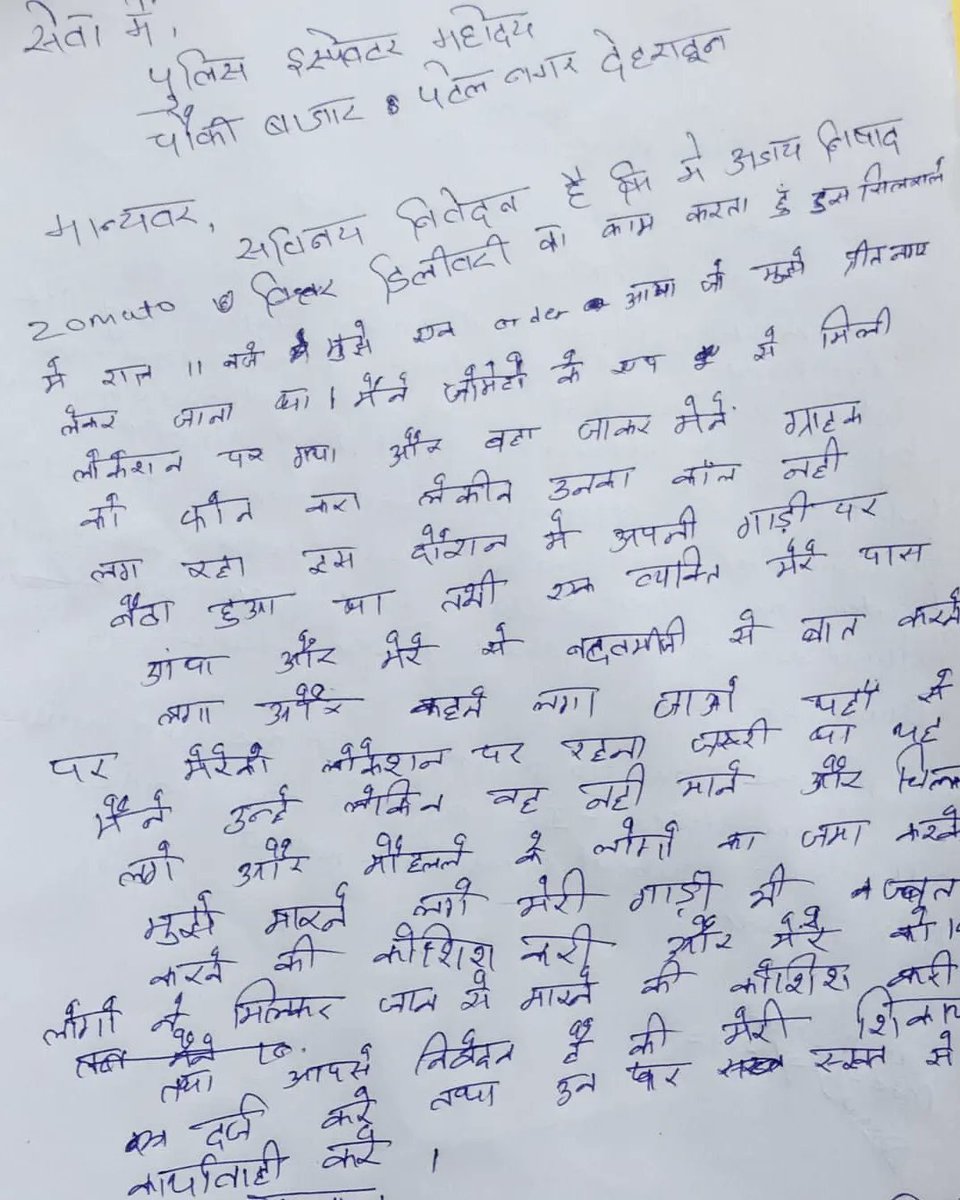 सेवा में,
पुलिस इंस्पेक्टर महोदय
चौकी बाजार पटेल नगर देहरादून
मान्यवर,
सविनय निवेदन है कि मे अजय निषाद
zomato डिलीवरी का काम करता हुं इस सिलसिले
मे रात 11 बजे मुझे एक order आया जो मुझे
लेकर जाना था। मैंने जोमेटो के एप से मिली
लोकेशन पर गया और वहा जाकर मेने ग्राहक
को फोन करा लेकीन उनका कॉल नही
लग रहा इस दौरान मे अपनी गाड़ी पर
बैठा हुआ था तभी एक व्यक्ति मेरे पास
आया और मेरे से बदतमीजी से बात करने
लगा और कहने लगा जाओ यहाँ से
पर मेरेको लोकेशन पर रहना जरूरी था यह
मैंने उन्हे लेकिन वह नही माने और चिल्ला
लगे और मौहल्ले के लोगो का जमा करके
मुझे मारने लगे मेरी गाड़ी भी जब्त
करने की कोशिश करी और मेरे को
लोगो ने मिलकर जान से मारने की कोशिश करी
तथा आपसे निवेदन है की मेरी शिकायत
दर्ज करे तथा उन पर सख्त से
कार्यवाही करे।